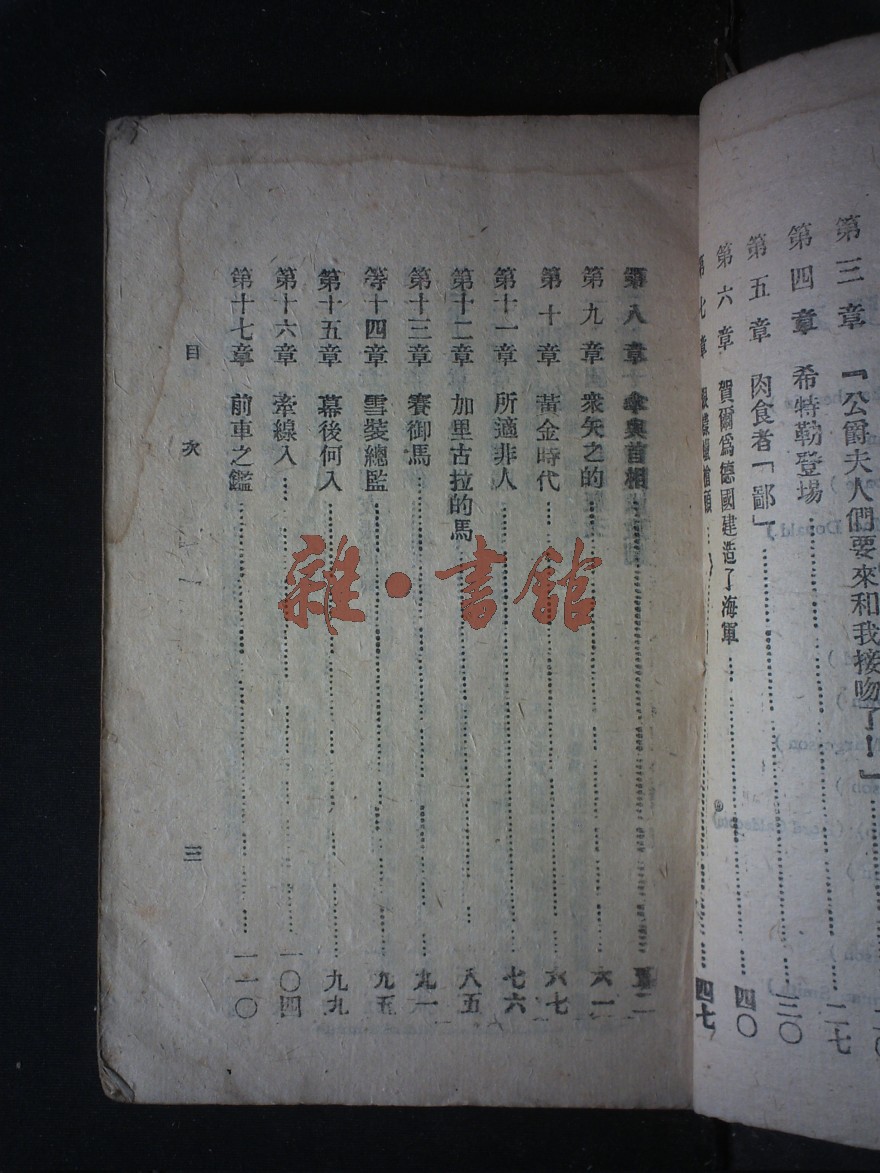 第三章 「公爵夫人們要來和我接吻了!」
第四章 希特勒登場 二七
第五章 肉食者「鄙」 三〇
第六章 賀爾爲德國建造了海軍 四〇
第七章 銀樣蠟槍頭 四七
第八章 傘與首相 五二
第九章 衆矢之的 六一
第十章 黃金時代 六七
第十一章 所適非人 七六
第十二章 加里古拉的馬 八五
第十三章 賽御馬 九一
等十四章 雪裝總監 九五
第十五章 幕後何人 九九
第十六章 牽線人 一〇四
第十七章 前車之鑑 一一〇
目次 三
雜·書館